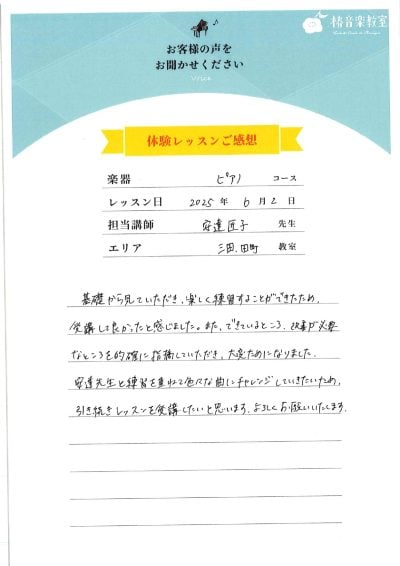 椿音楽教室
お客様の声を
お聞かせください
VOICE
体験レッスンご感想
楽器 ピアノ コース
レッスン日 2025 年 6 月 2 日
担当講師 安達 匠子 先生
エリア 三田、田町 教室
基礎から見ていただき、楽しく練習することができたため、
受講して良かったと感じました。また、できているところ、改善が必要
なところを的確に指摘していただき、大変ためになりました。
安達先生と練習を重ねて色々な曲にチャレンジしていきたいため、
引き続きレッスンを受講したいと思います。よろしくお願いいたします。